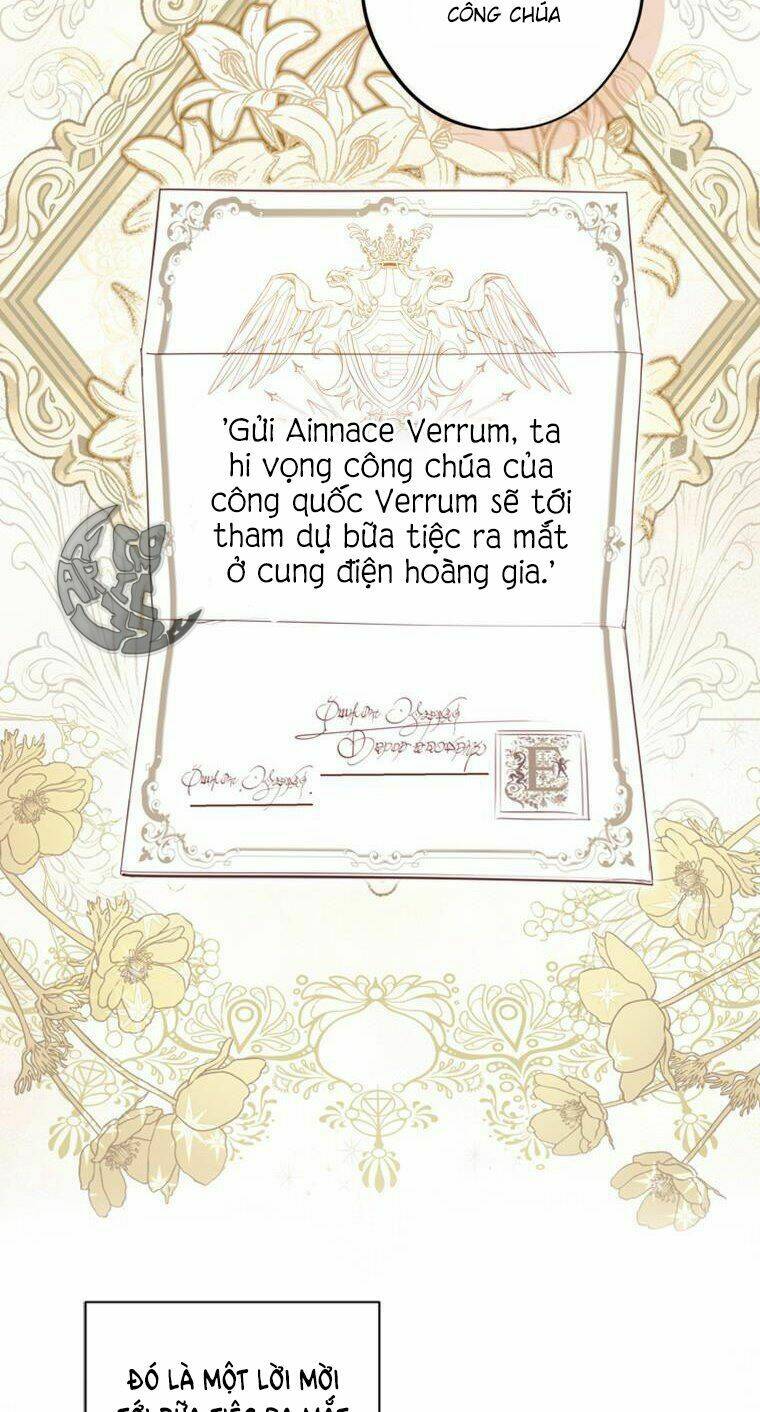 CÔNG CHÚA
'Gửi Ainnace Verrum, ta
hi vọng công chúa của
công quốc Verrum sẽ tới
tham dự bữa tiệc ra mắt
ở cung điện hoàng gia.'
E
ĐÓ LÀ MỘT LỜI MỜI
TỚI BỮA TIỆC RA MẮT